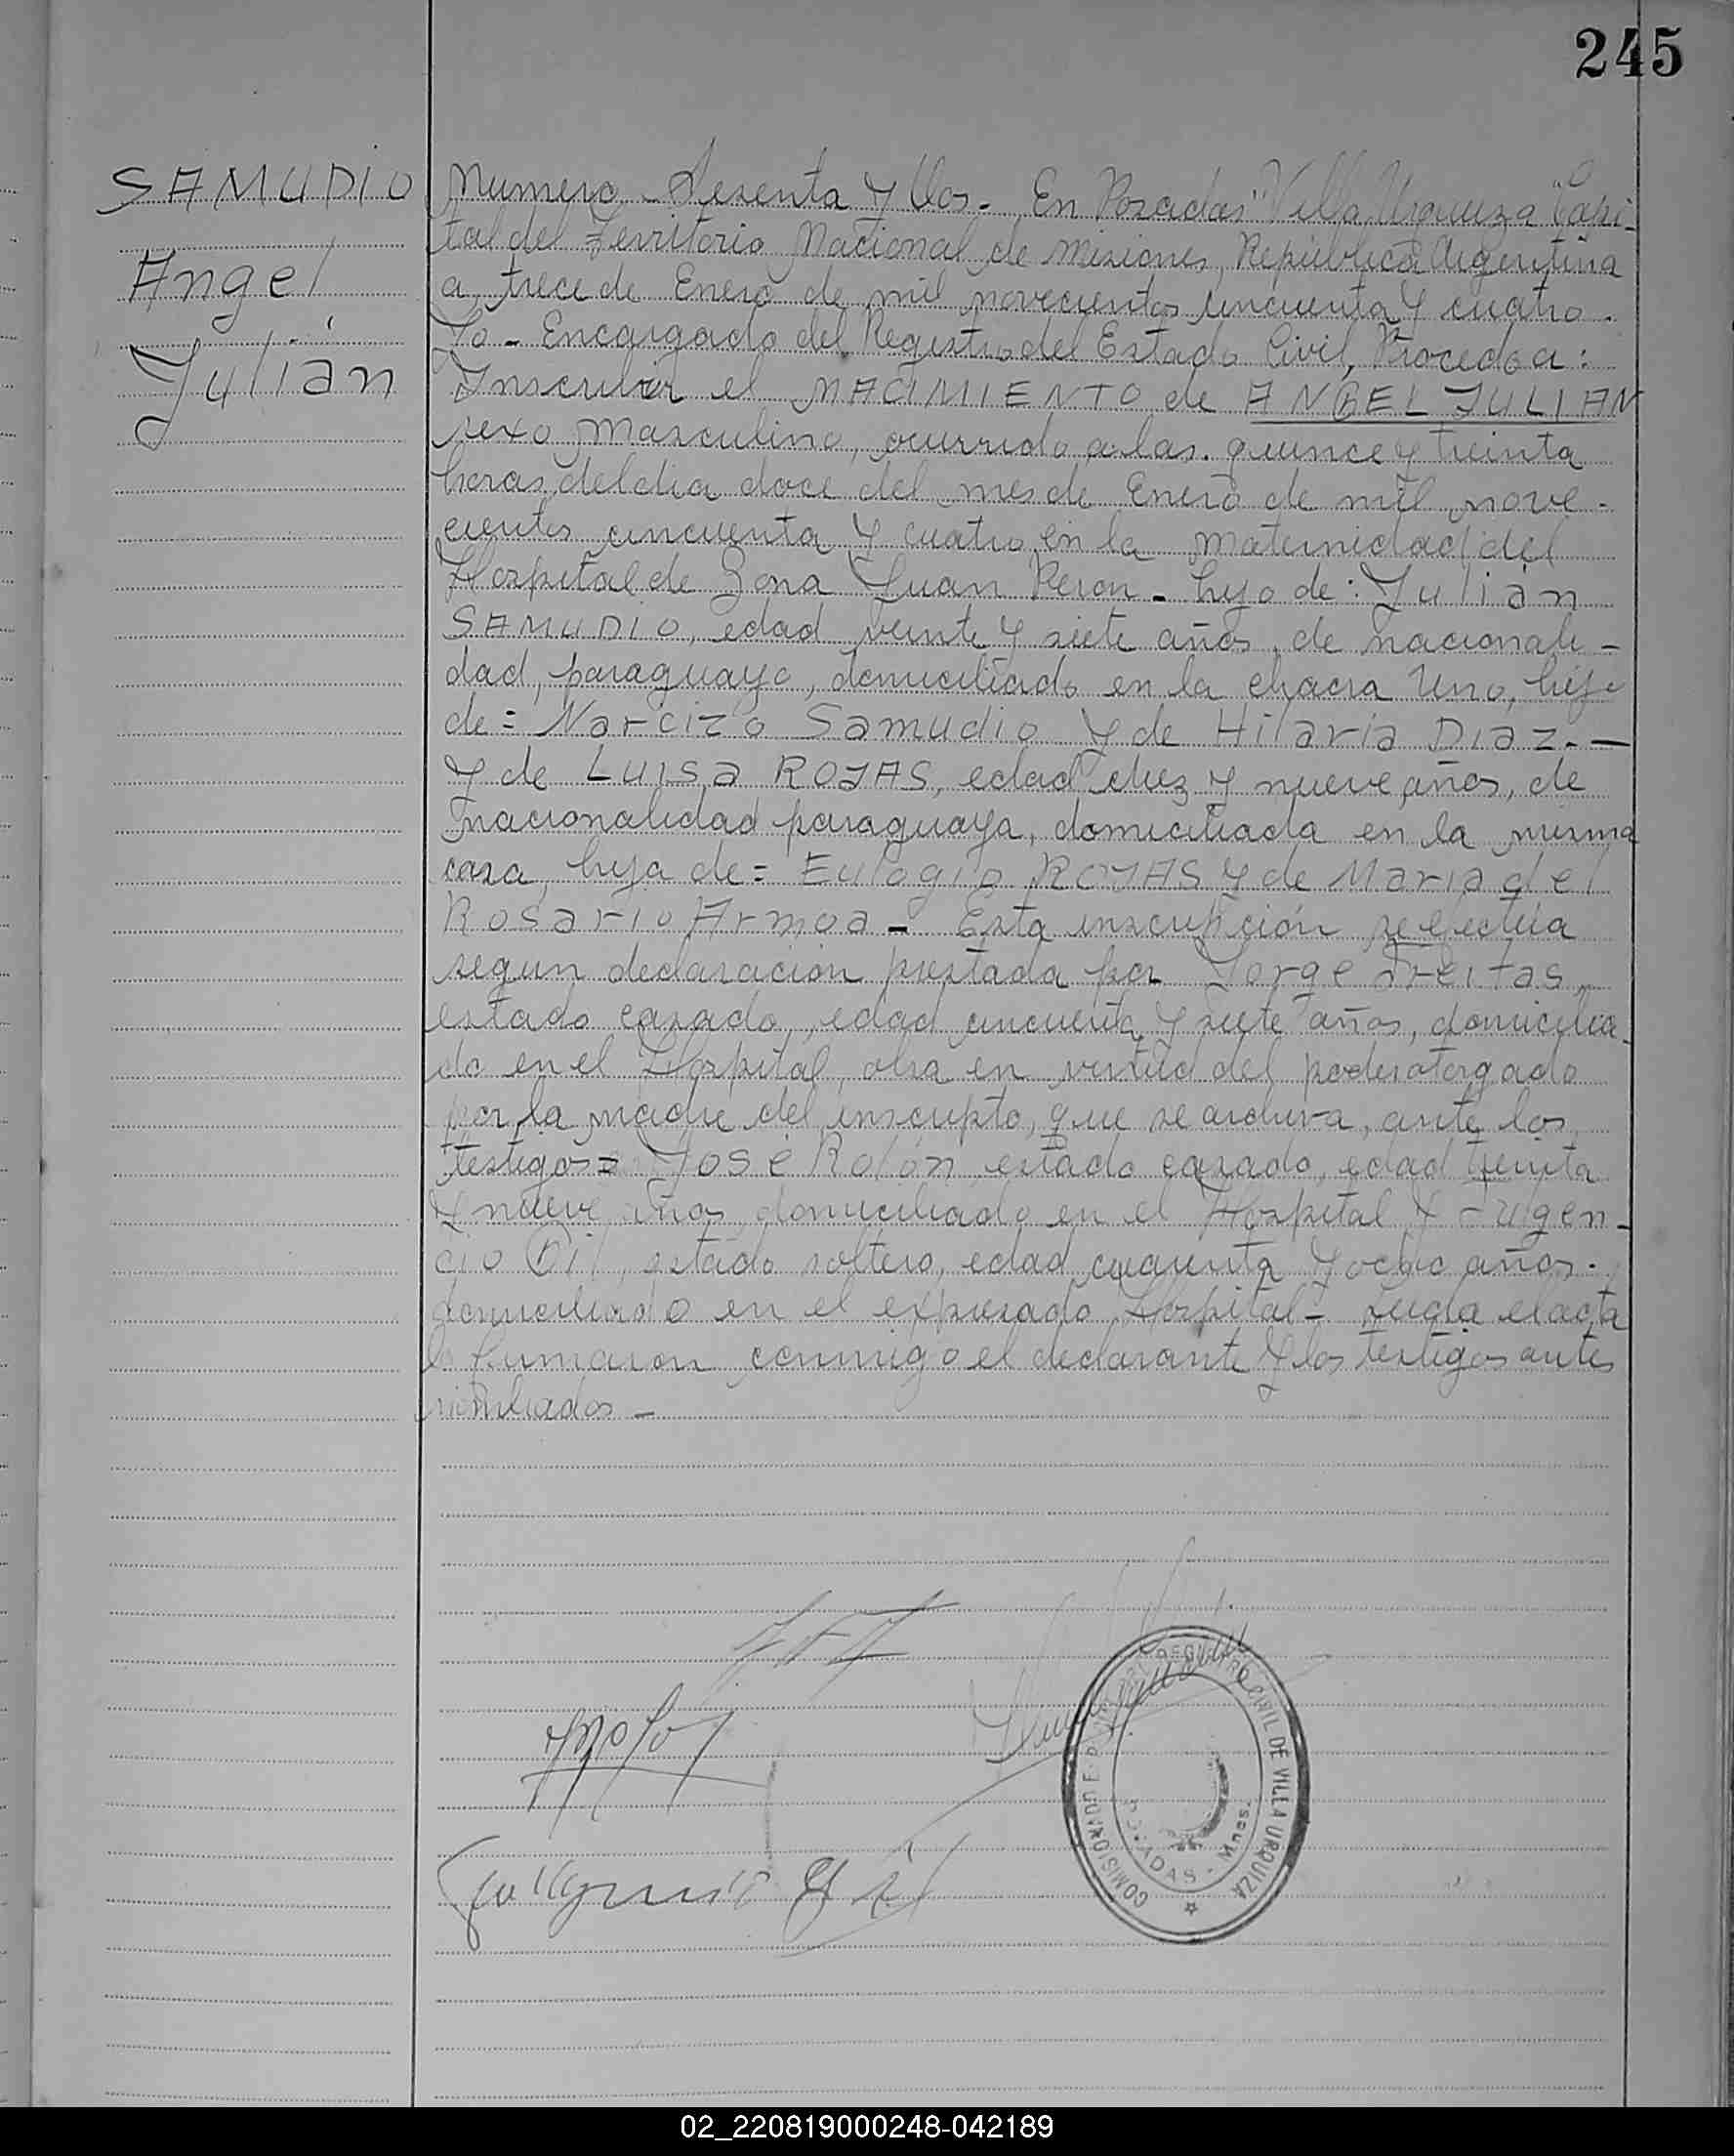 245
SAMUDIO
Angel
Julián
Numero Sesenta y dos - En Posadas "Villa Urquiza" Capi-
tal del Territorio Nacional de Misiones, República Argentina
a trece de Enero de mil novecientos cincuenta y cuatro.
Yo - Encargado del Registro del Estado Civil, Procedo a:
Inscribir el NACIMIENTO de ANGEL JULIAN
sexo masculino, ocurrido a las. quince y treinta
horas, del dia doce del mes de Enero de mil nove-
cientos cincuenta y cuatro, en la maternidad del
Hospital de Zona Juan Peron - hijo de: Julián
SAMUDIO, edad veinte y siete años, de nacionali-
dad, paraguayo, domiciliado en la chacra Uno, hijo
de = Narcizo Samudio y de Hilaria Diaz. -
y de Luisa ROJAS, edad diez y nueve años, de
nacionalidad paraguaya, domiciliada en la misma
casa, hija de = Eulogio ROJAS y de Maria del
Rosario Armoa - Esta inscripción se efectúa
segun declaracion prestada por Jorge Freitas,
estado casado, edad cincuenta y siete años, domicilia-
do en el Hospital, obra en virtud del poder otorgado
por la madre del inscripto, que se archiva, ante los
testigos = José Rolón estado casado, edad treinta
y nueve años, domiciliado en el Hospital y Fulgen-
cio Gil, estado soltero, edad cuarenta y ocho años.
domiciliado en el expresado Hospital - Leida el acta
la firmaron conmigo el declarante y los testigos antes
nombrados -
REGISTRO CIVIL DE VILLA URQUIZA
POSADAS - Mnes.
02_220819000248-042189